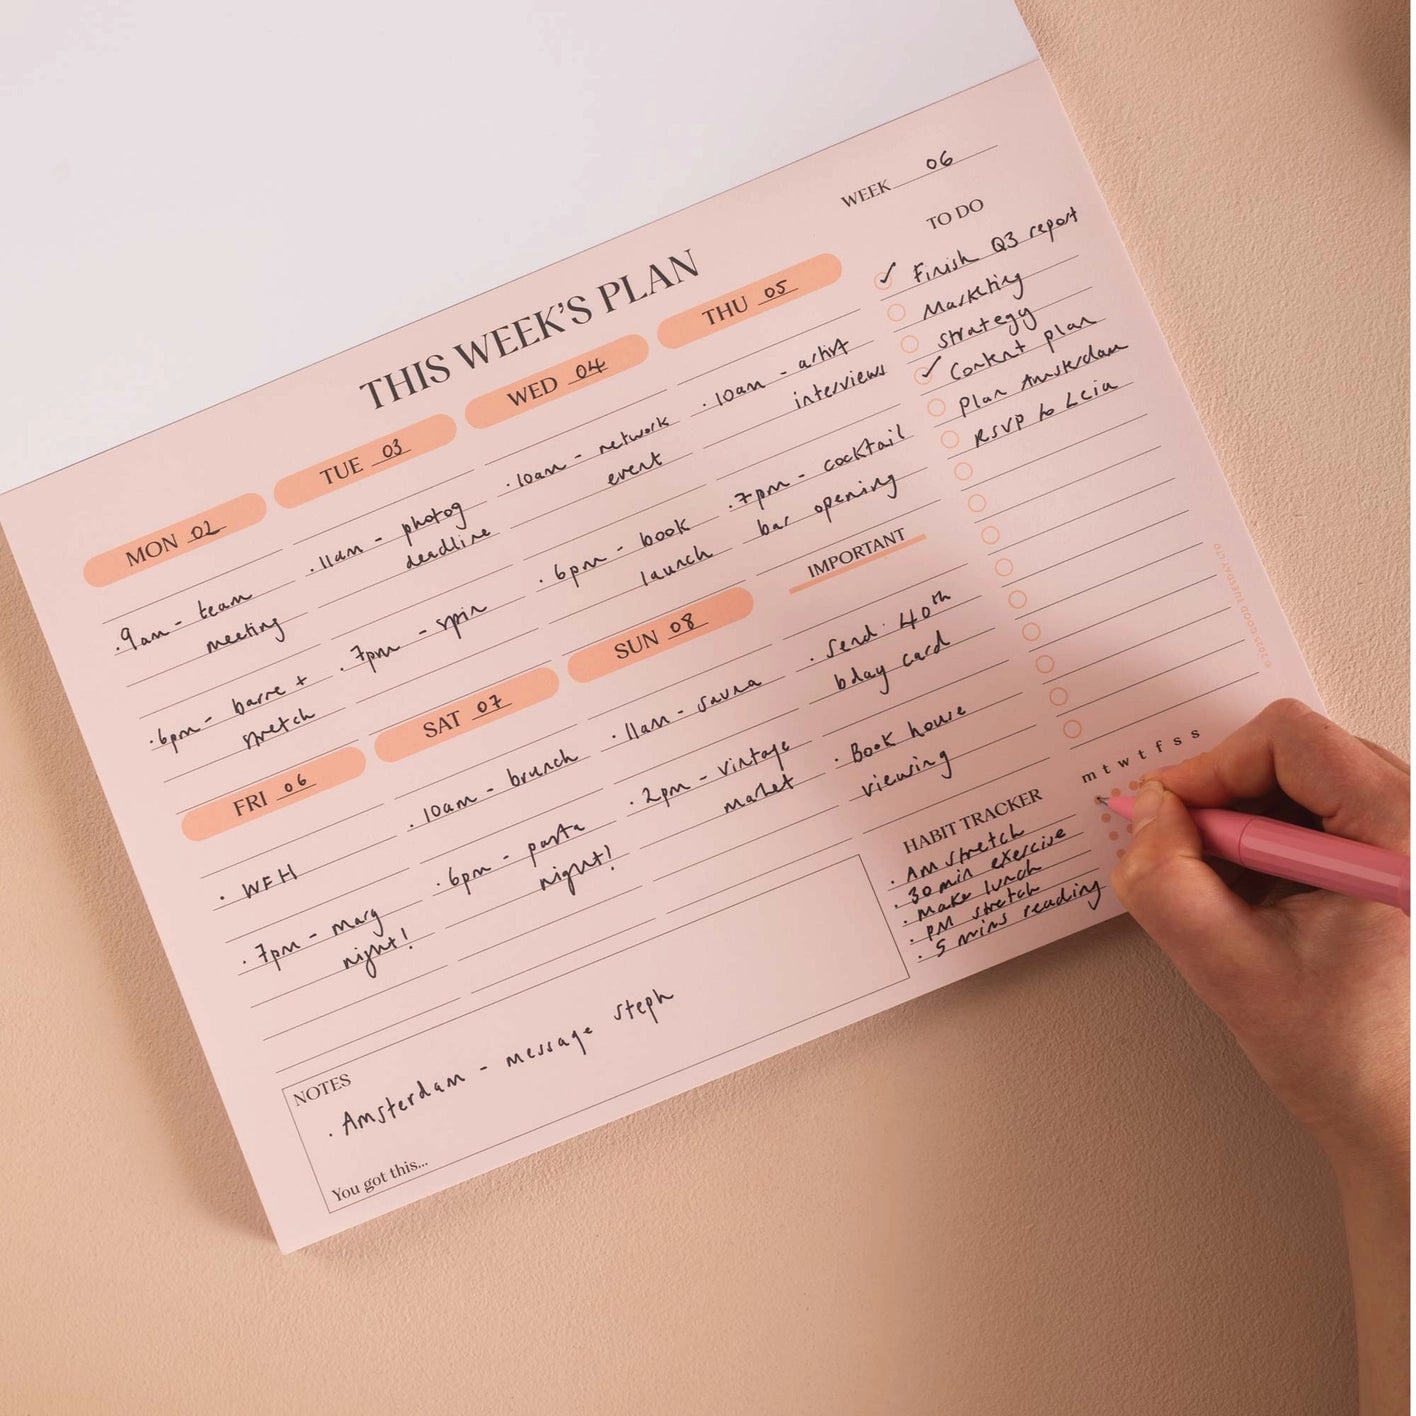 WEEK 06
THIS WEEK'S PLAN
MON 02
· 9am - team
meeting
· 6pm - barre +
stretch
TUE 03
· 11am - photog
deadline
· 7pm - spin
WED 04
· 10am - network
event
· 6pm - book
launch
THU 05
· 10am - artist
interviews
· 7pm - cocktail
bar opening
FRI 06
· WFH
· 7pm - marg
night!
SAT 07
· 10am - brunch
· 6pm - pasta
night!
SUN 08
· 11am - sauna
· 2pm - vintage
market
IMPORTANT
· Send 40th
bday card
· Book house
viewing
TO DO
✓ Finish Q3 report
Marketing
strategy
✓ Content plan
Plan Amsterdam
RSVP to Leia
HABIT TRACKER
m t w t f s s
· AM stretch
· 30min exercise
· Make lunch
· PM stretch
· 5 mins reading
NOTES
· Amsterdam - message Steph
You got this...